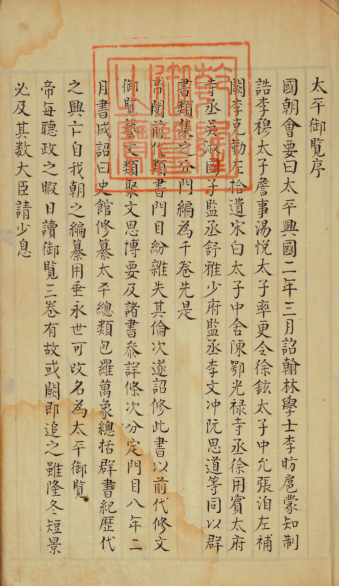 太平御覧序
國朝會要曰太平興國二年三月詔翰林學士李昉扈蒙知制
誥李穆太子詹事湯悅太子率更令徐鉉太子中允張洎左補
闕李克勤左拾遺宋白太子中舍陳鄂光禄寺丞徐用賓太府
寺丞吳淑國子監丞舒雅少府監丞李文冲阮思道等同以群
書類集之分門編為千卷先是
帝閱前代類書門目紛雜失其倫次遂詔修此書以前代修文
御覧藝文類聚文思博要及諸書叅詳條次分定門目八年二
月書成詔曰史館修纂太平總類包羅萬象總括群書紀歷代
之興亡自我朝之編纂用垂永世可改名為太平御覧
帝每聽政之暇日讀御覧三卷有故或闕即追之雖隆冬短景
必及其数大臣請少息